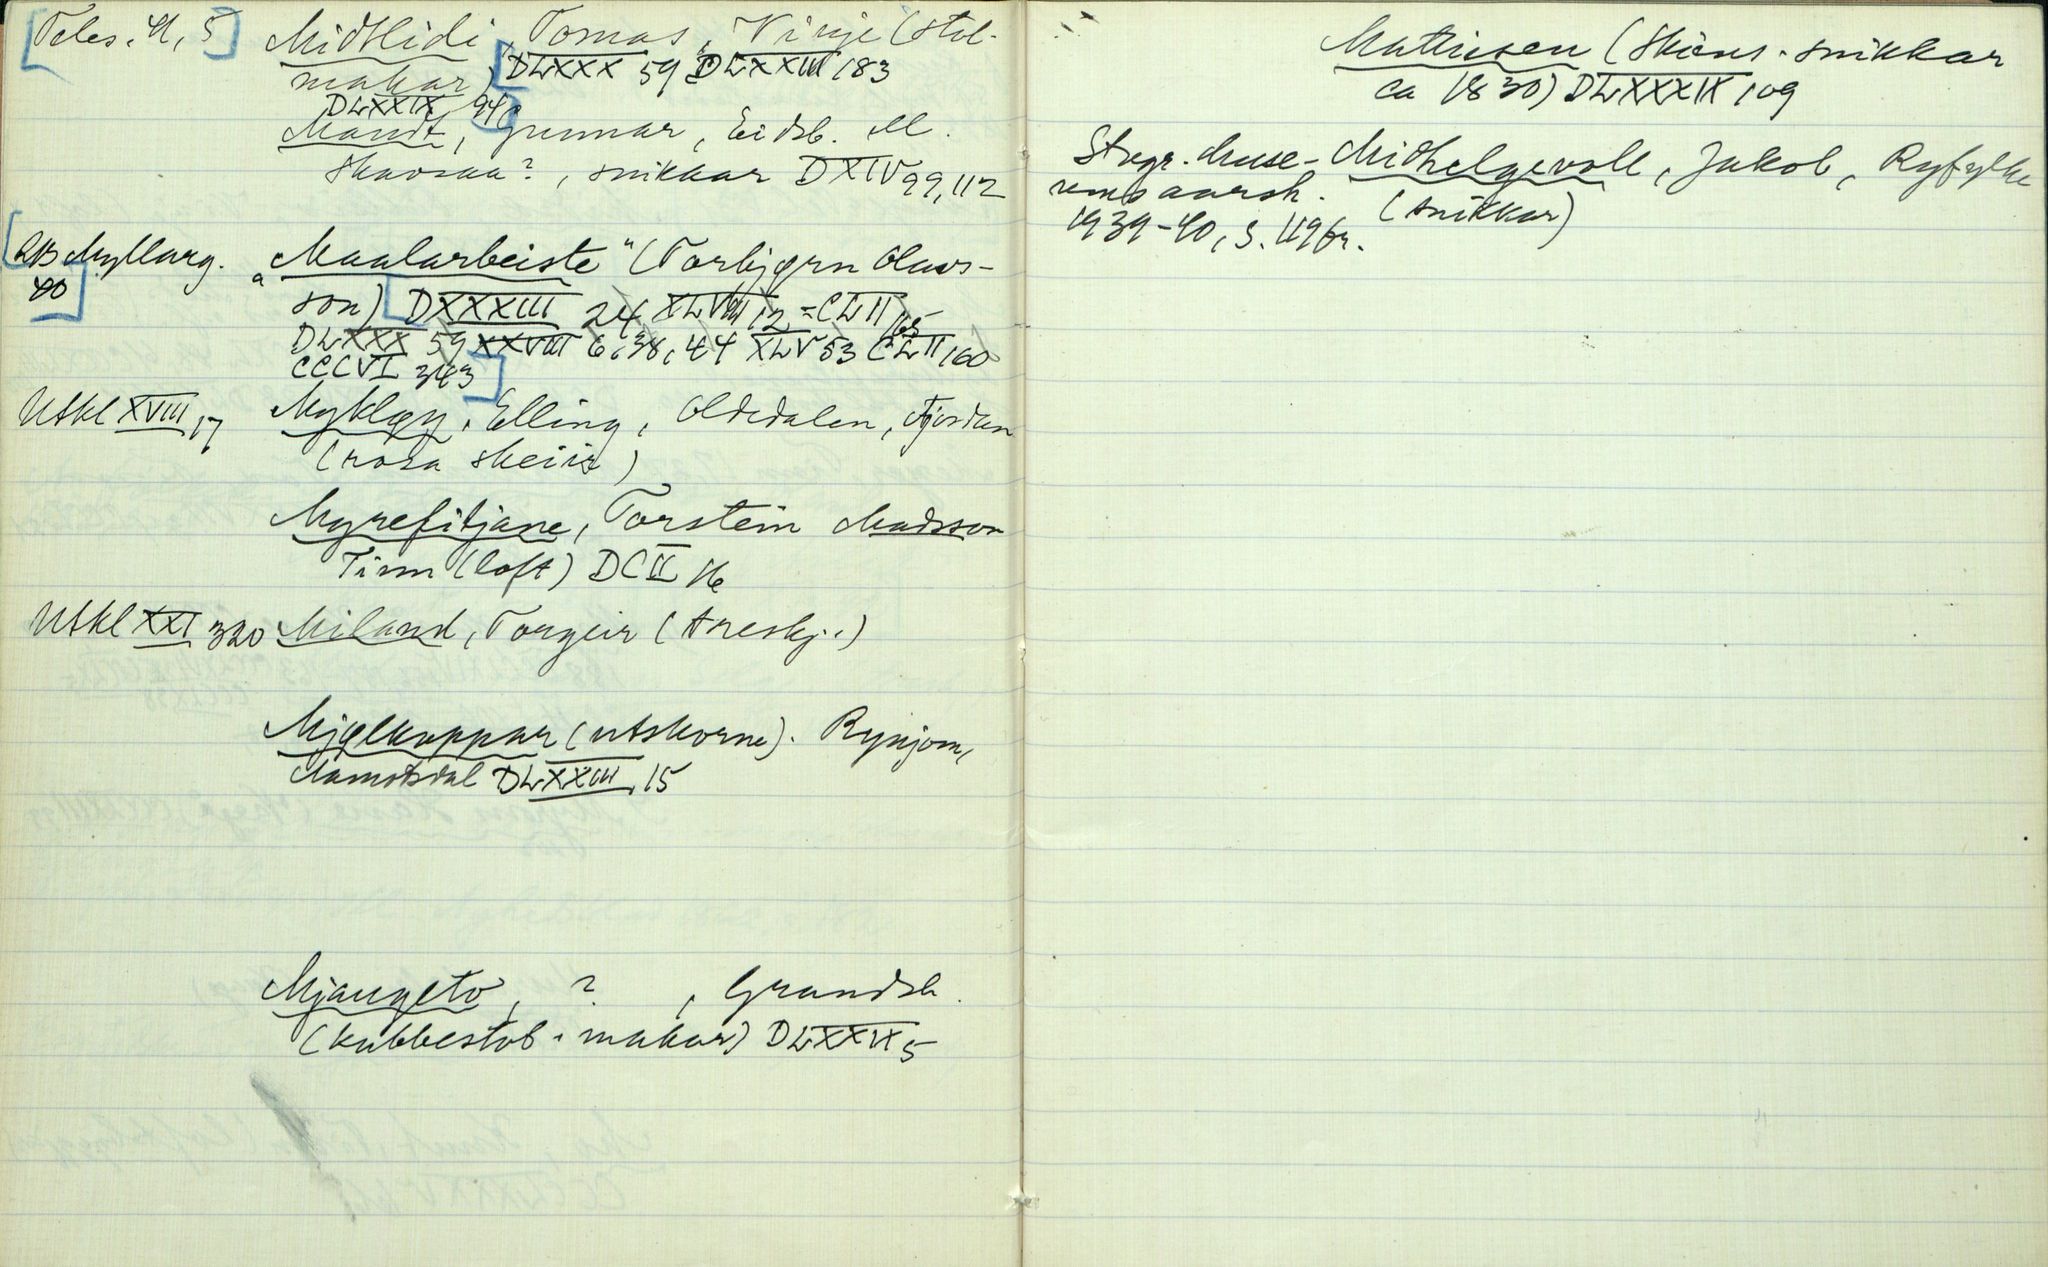 [Teles. 4, 5] Midtlidi, Tomas, Vinje (stol-
makar) [DLXXX 59 DLXXIII 183
DLXXIX 94]
Mandt, Gunnar, Eidsb. M.
Skavsaa?, snikkar DXIV 99, 112
[RB Myllarg. "Maalarbeiste" (Torbjørn Olavs-
40] son) [DXXXIII 24 XLVIII 12 = CLII 165
DLXXX 59 XXVIII 6, 38, 44 XLV 53 CLII 160
CCCVI 343]
Utkl XVIII 17 Mykløy, Elling, Oldedalen, Fjordan
(rosa skeiir)
Myrefitjane, Torstein Madsson
Tinn (loft) DCII 16
Utkl XXI 320 Miland, Torgeir (treskj.)
Mjølkoppar (utskorne). Rynjom,
Aamotsdal DLXXIII 15
Mjaugeto, ? , Gransh.
(kubbestol-makar) DLXXIX 5
Mathisen (Skiens-snikkar
ca 1830) DLXXXIX 109
Stvgr. Muse- Midhelgevoll, Jakob, Ryfylke
umsaarsh. (snikkar)
1939-40, s. 119 fr.